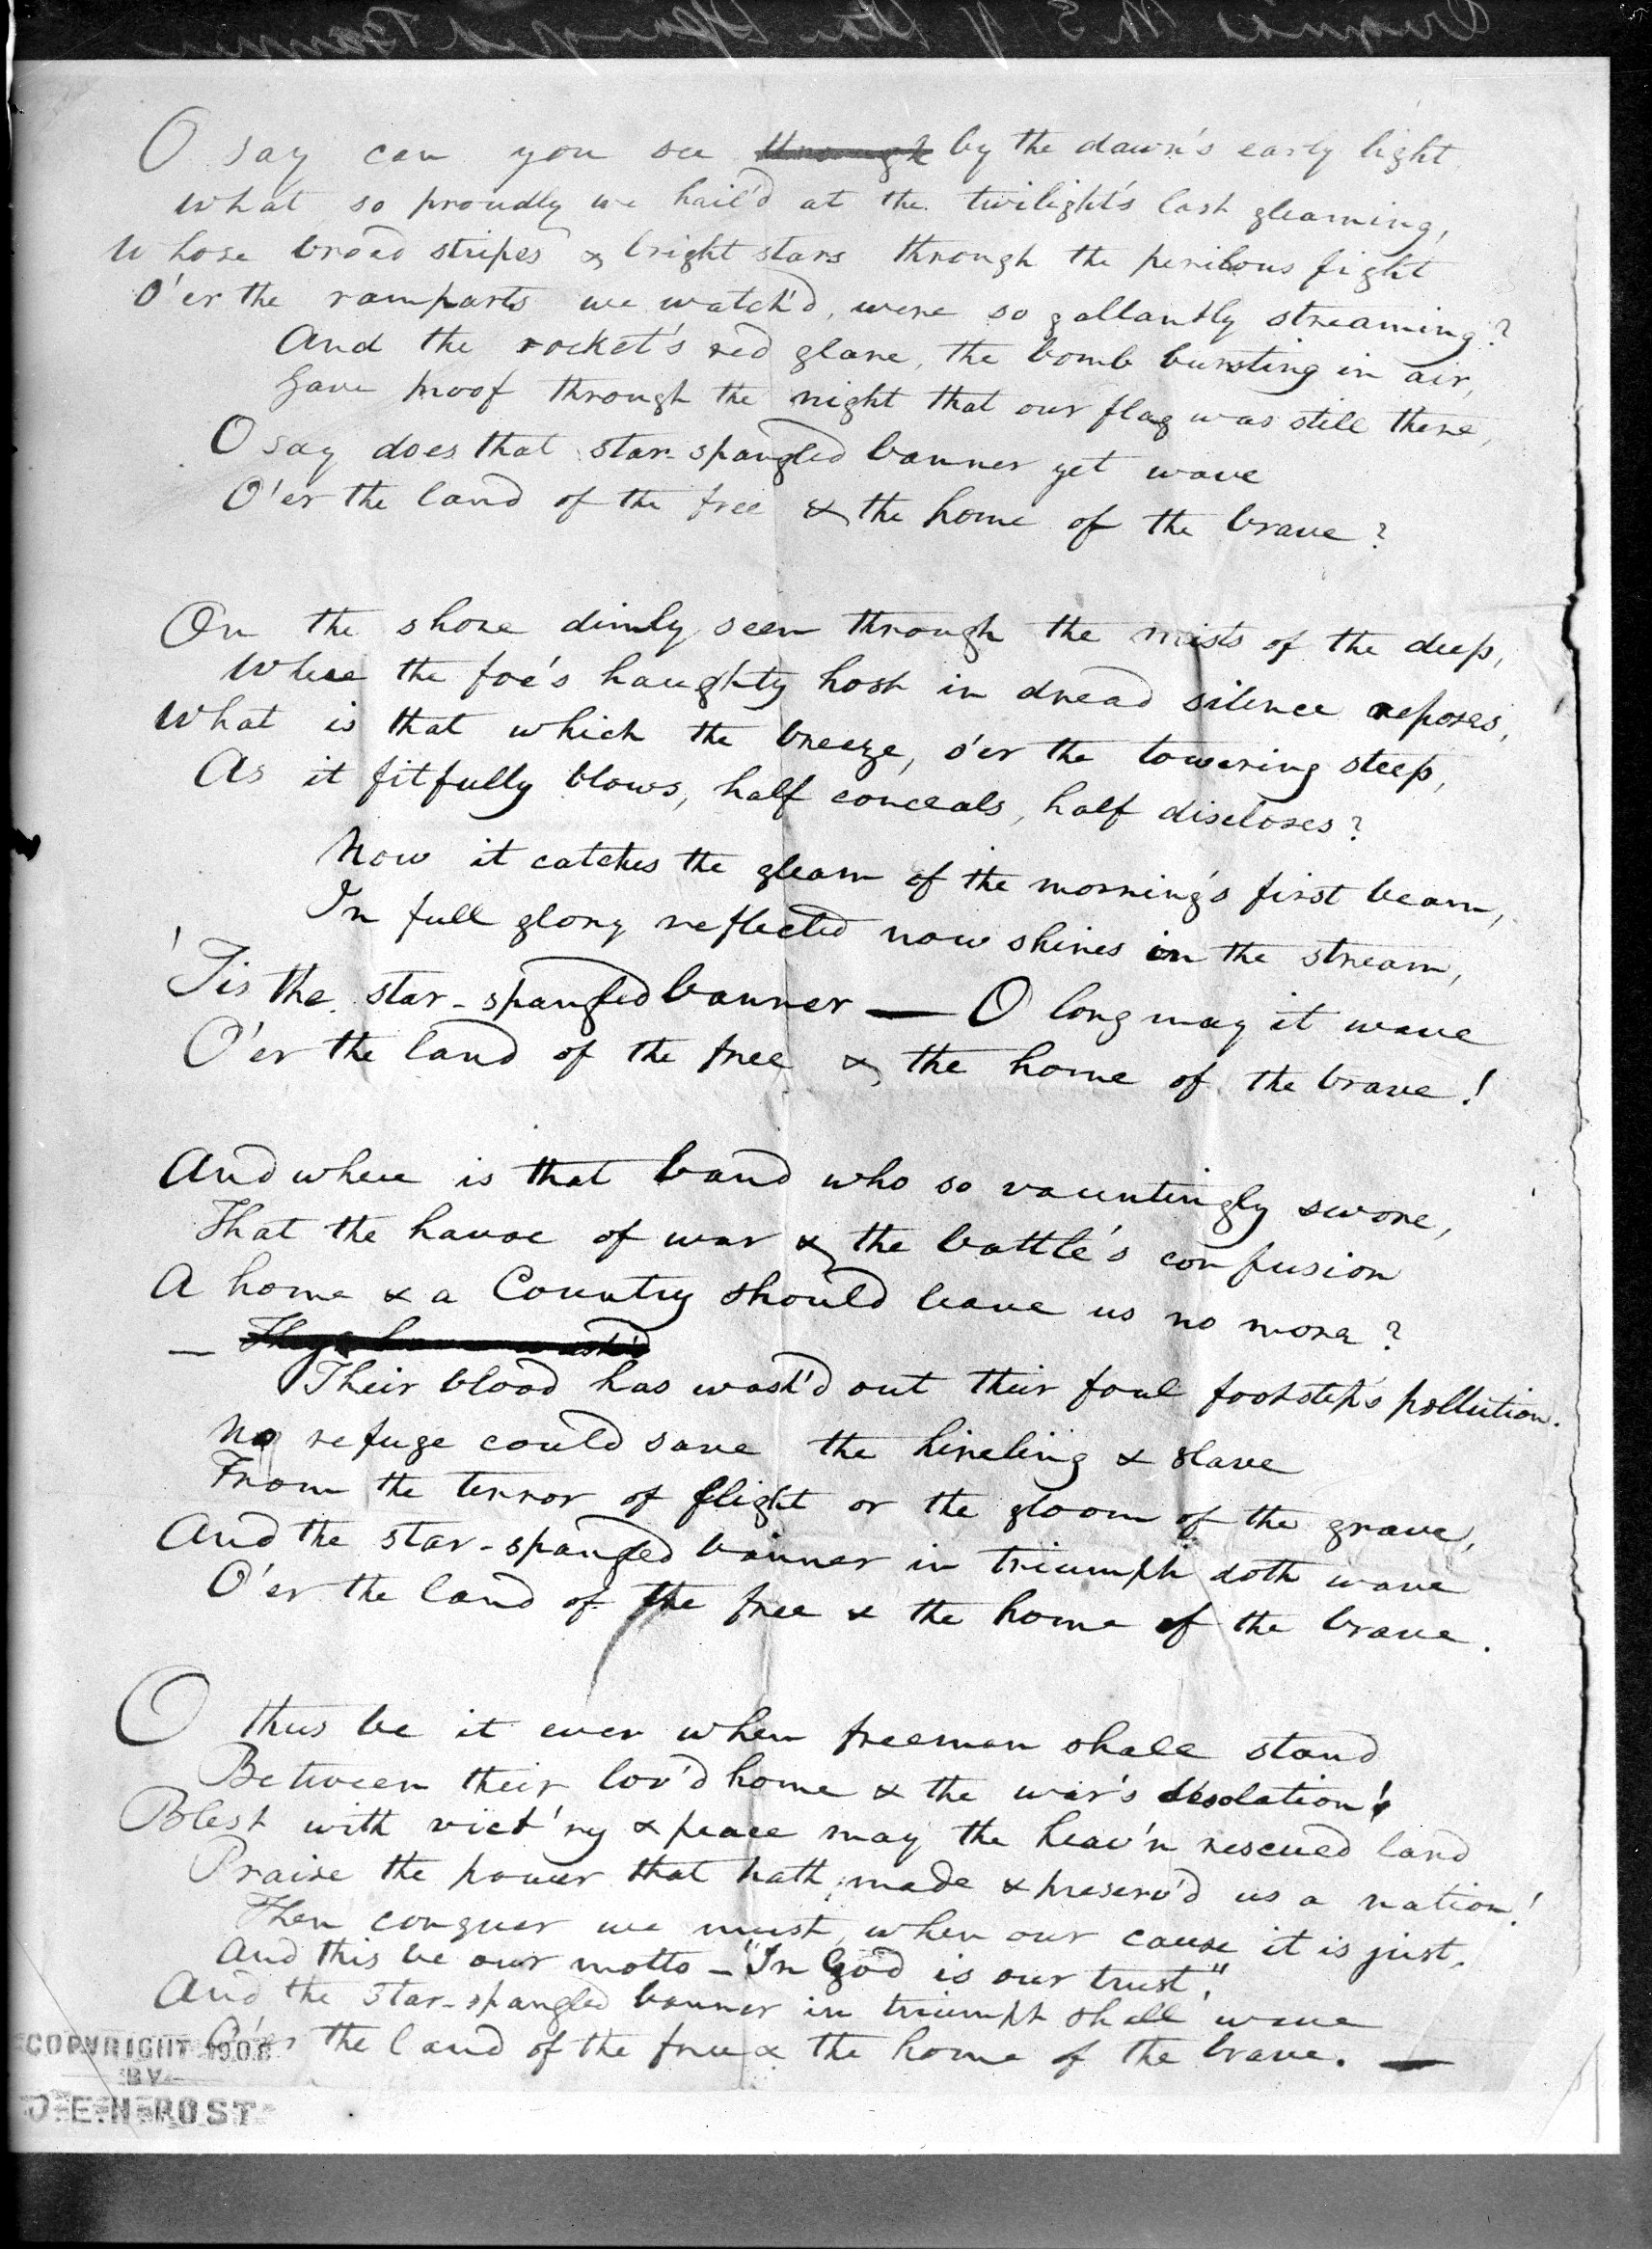 Original M.S. of Star Spangled Banner
O say can you see through by the dawn's early light
What so proudly we hail'd at the twilight's last gleaming,
Whose broad stripes & bright stars through the perilous fight
O'er the ramparts we watch'd, were so gallantly streaming?
And the rocket's red glare, the bomb bursting in air,
Gave proof through the night that our flag was still there,
O say does that star-spangled banner yet wave
O'er the land of the free & the home of the brave?
On the shore dimly seen through the mists of the deep,
Where the foe's haughty host in dread silence reposes,
What is that which the breeze, o'er the towering steep,
As it fitfully blows, half conceals, half discloses?
Now it catches the gleam of the morning's first beam,
In full glory reflected now shines in the stream,
'Tis the star-spangled banner — O long may it wave
O'er the land of the free & the home of the brave!
And where is that band who so vauntingly swore,
That the havoc of war & the battle's confusion
A home & a Country should leave us no more?
— They have wash'd
Their blood has wash'd out their foul footstep's pollution.
No refuge could save the hireling & slave
From the terror of flight or the gloom of the grave,
And the star-spangled banner in triumph doth wave
O'er the land of the free & the home of the brave.
O thus be it ever when freemen shall stand
Between their lov'd home & the war's desolation!
Blest with vict'ry & peace may the heav'n rescued land
Praise the power that hath made & preserv'd us a nation!
Then conquer we must, when our cause it is just,
And this be our motto — "In God is our trust,"
And the star-spangled banner in triumph shall wave
O'er the land of the free & the home of the brave. —
COPYRIGHT 1908
BY
J.E.H. POST